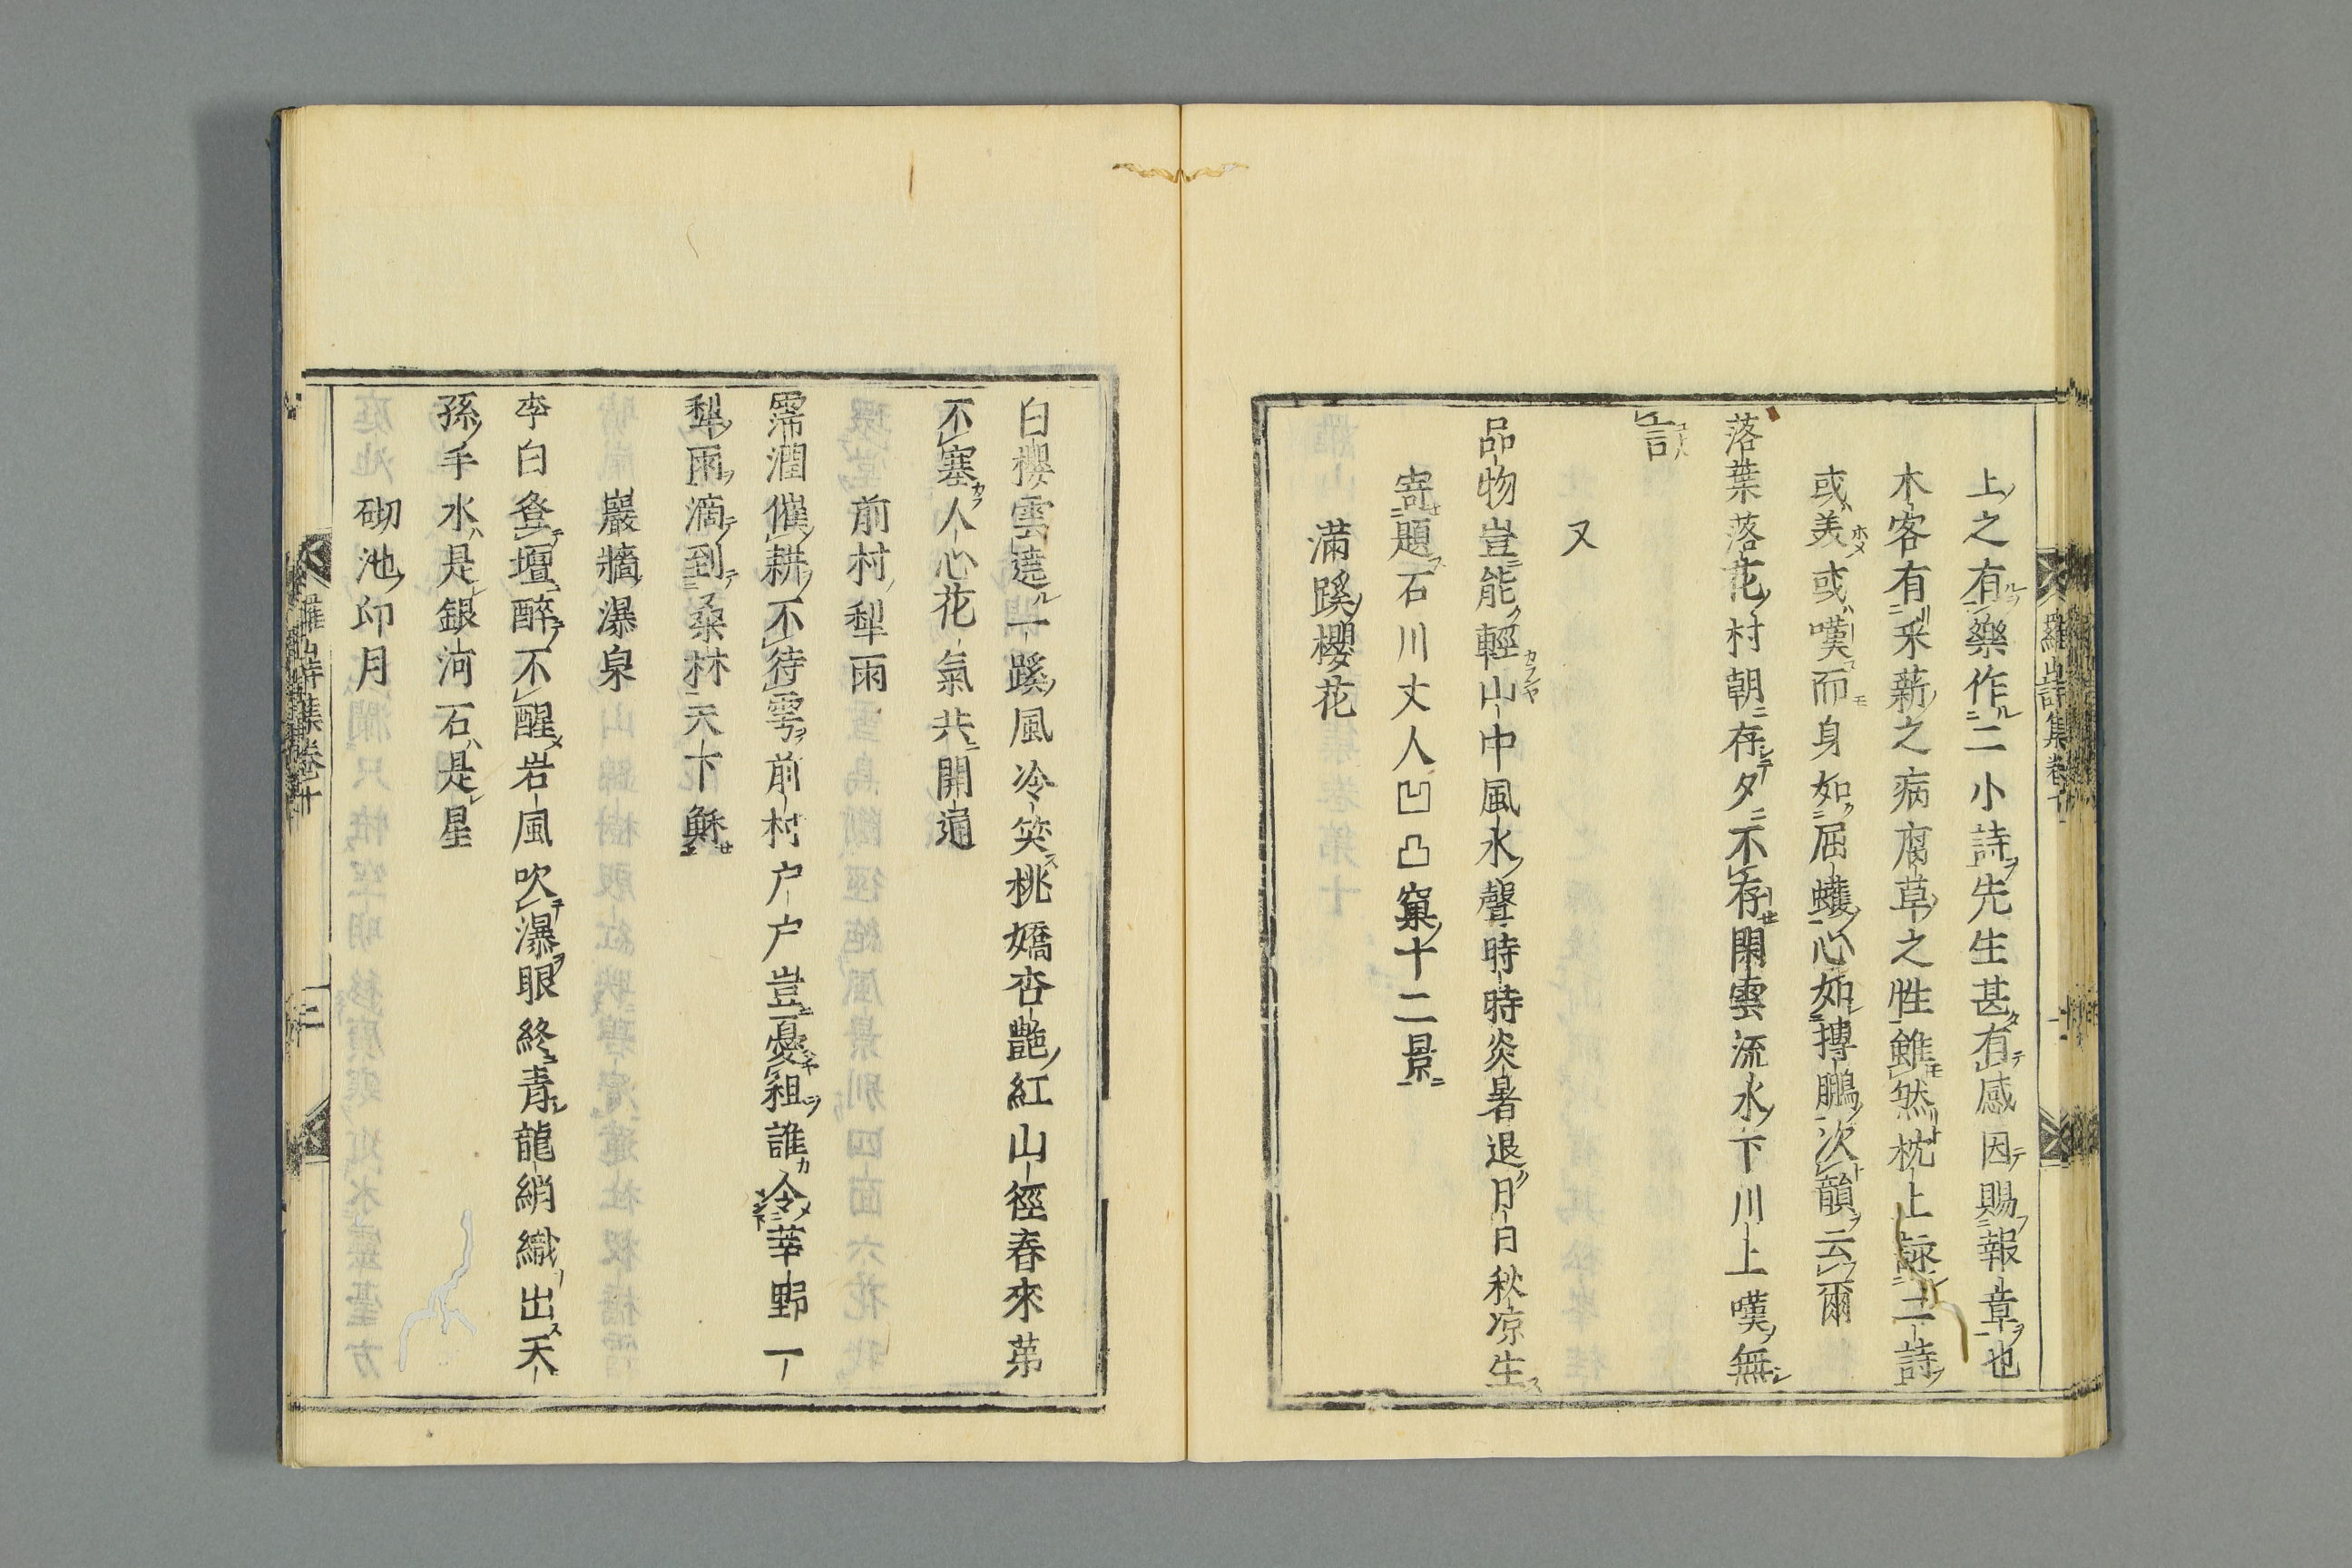 上之有藥作二小詩先生甚有感因賜報章也
木客有采薪之病腐草之性雖然枕上詠二詩
或美或嘆而身如屈蠖心如摶鵬次韻云爾
落葉落花村朝存夕不存閑雲流水下川上嘆無
言
又
品物豈能輕山中風水聲時時炎暑退日日秋凉生
寄題石川丈人凹凸窠十二景
滿蹊櫻花
白櫻雲遶一蹊風冷笑桃嬌杏艶紅山徑春來第
不塞人心花氣共開通
前村犁雨
霈潤催耕不待雩前村戸戸豈憂租誰令莘野一
犁雨滴到桑林天下穌
巖牆瀑泉
李白登壇醉不醒岩風吹瀑眼終青龍綃織出天
孫手水是銀河石是星
砌池印月
羅山詩集卷十
羅山詩集卷十 二